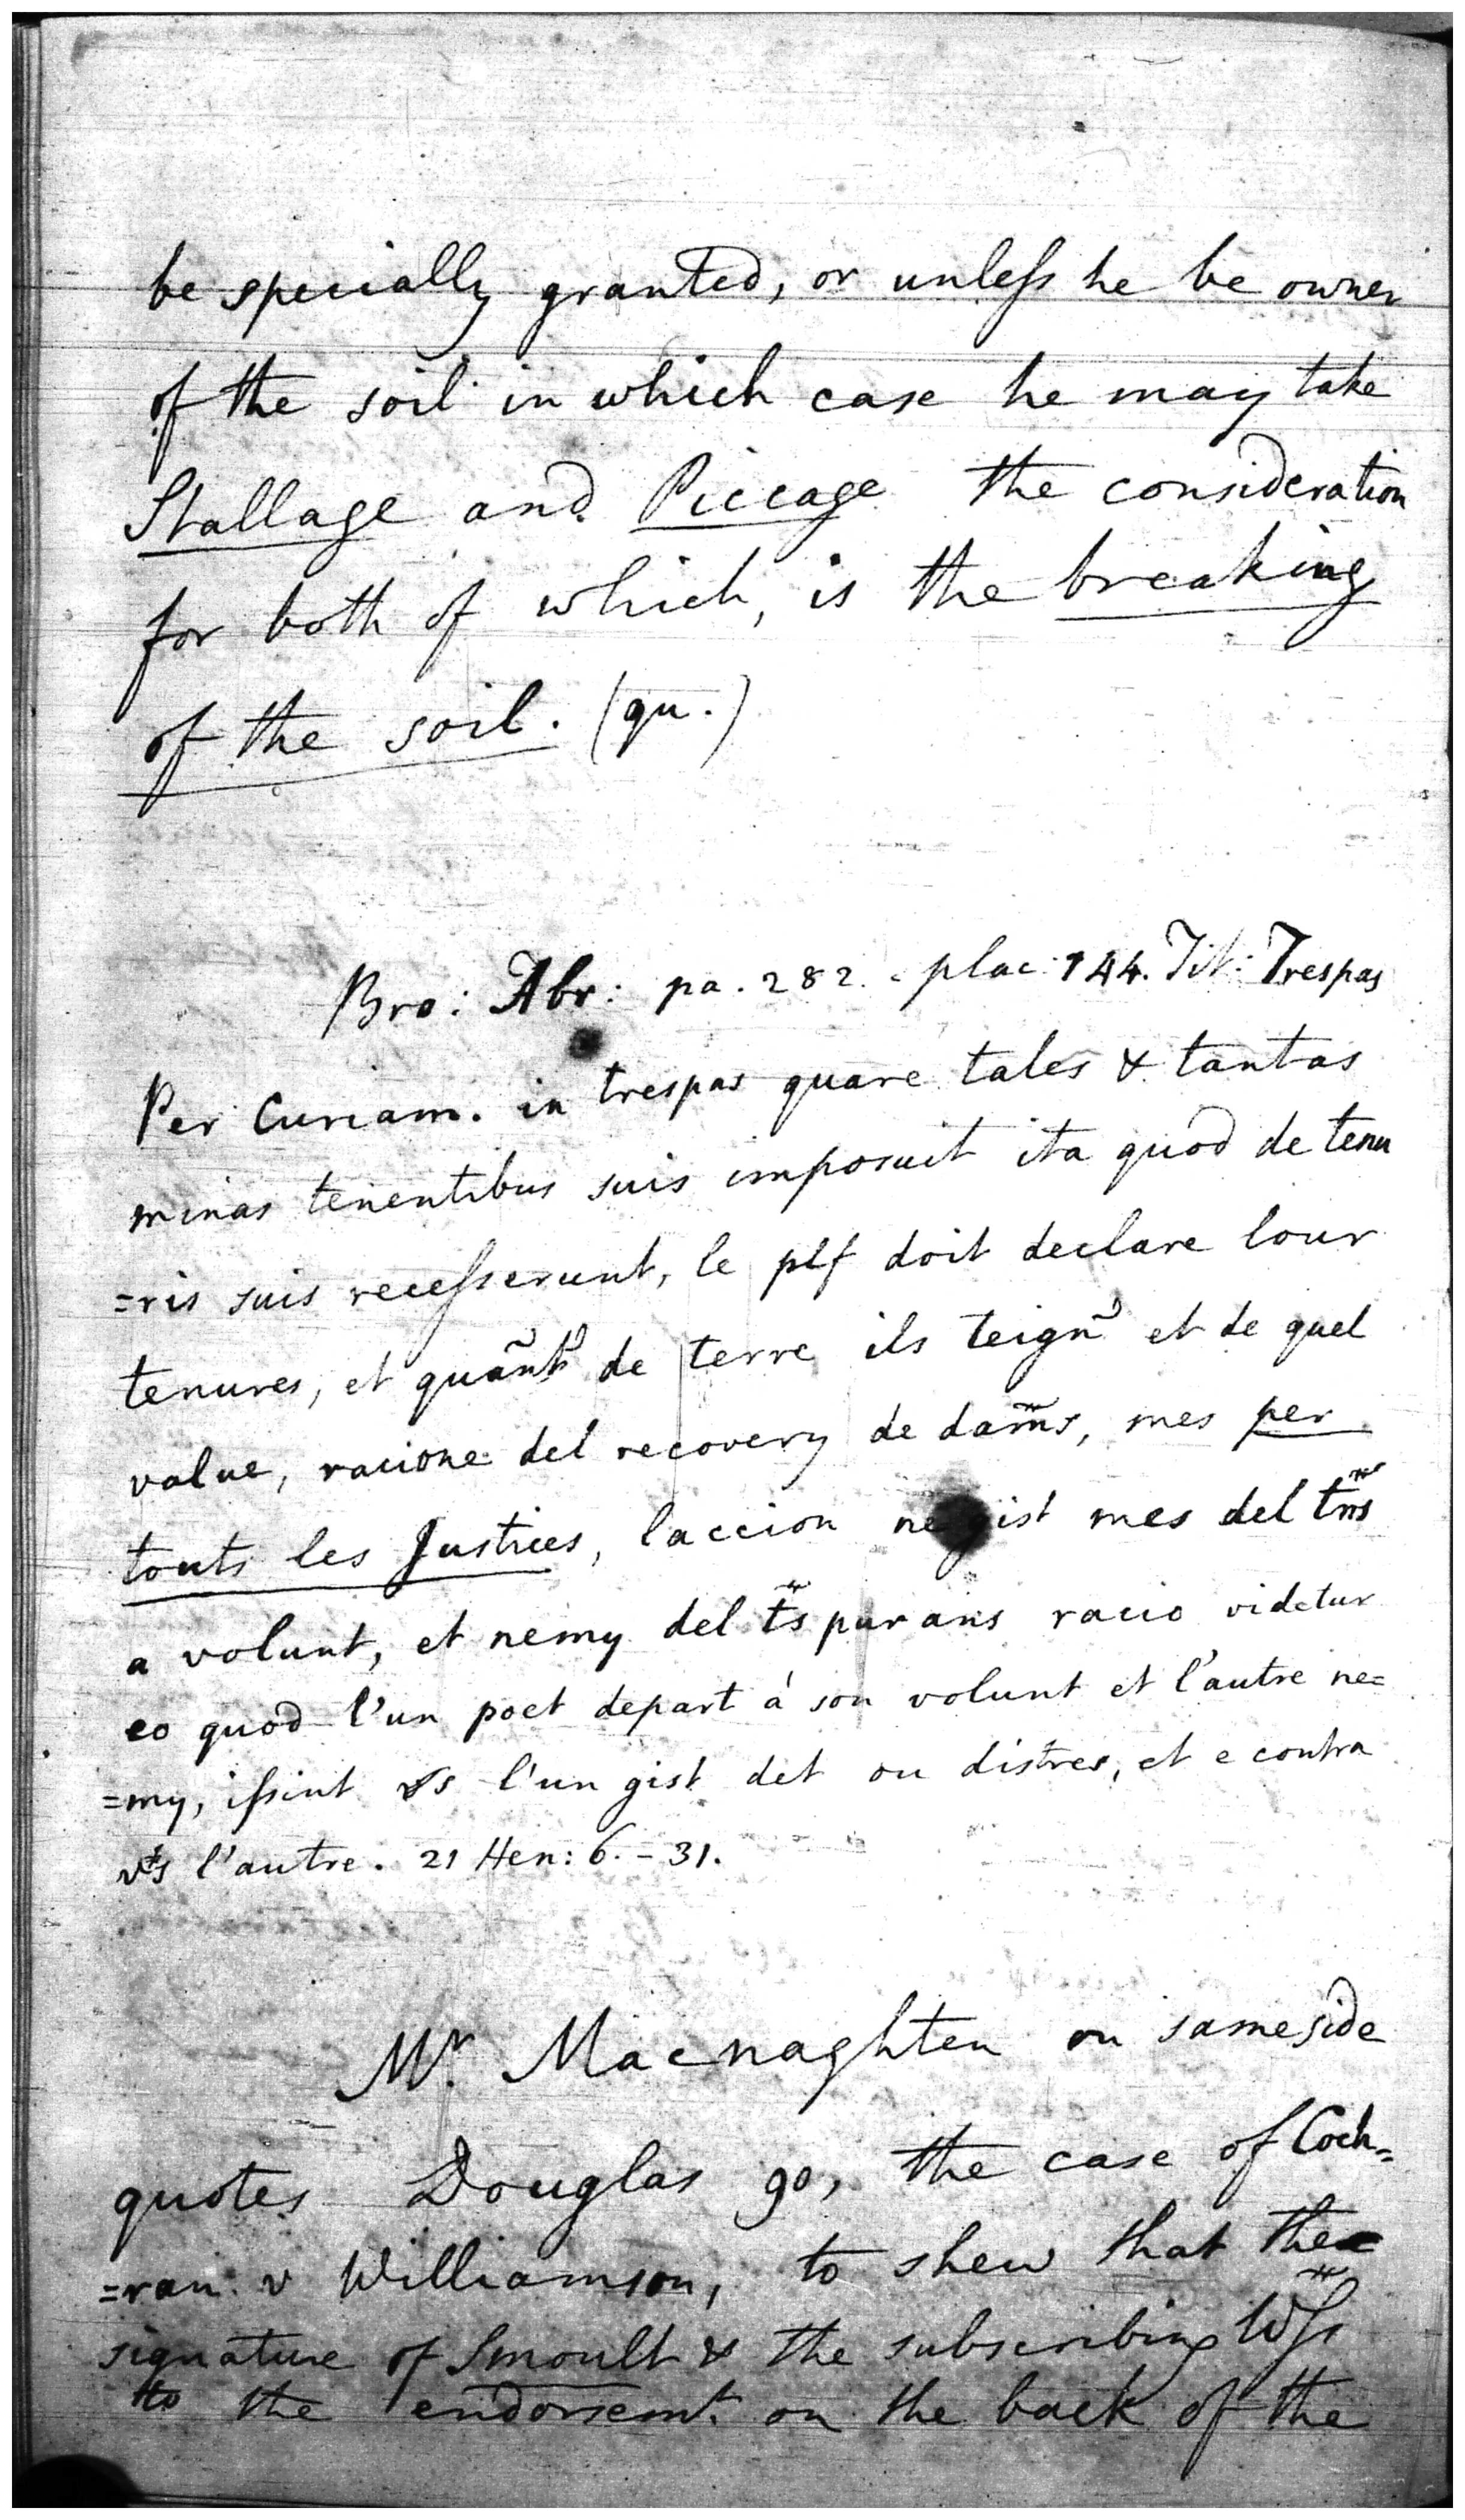 be specially granted, or unless he be owner
of the soil in which case he may take
Stallage and Piccage the consideration
for both of which, is the breaking
of the soil. (qu.)
Bro: Abr: pa. 282. plac: 144. Tit: Trespas
Per Curiam. in trespas quare tales & tantas
minas tenentibus suis imposuit ita quod de tenu
=ris suis recesserunt, le plf doit declare lour
tenures, et quant de terre ils teign̄ et de quel
value, racione del recovery de dam̄s, mes per
touts les Justices, laccion ne gist mes del tn̄s
a volunt, et nemy del t̄s pur ans racio videtur
eo quod l'un poet depart à son volunt et l'autre ne=
=my, issint vs l'un gist det ou distres, et e contra
vs l'autre. 21 Hen: 6. - 31.
Mr. Macnaghten on same side
quotes Douglas 90, the case of Coch=
=ran v Williamson, to shew that the
signature of Smoult & the subscribing Wss
to the endorsemt. on the back of the